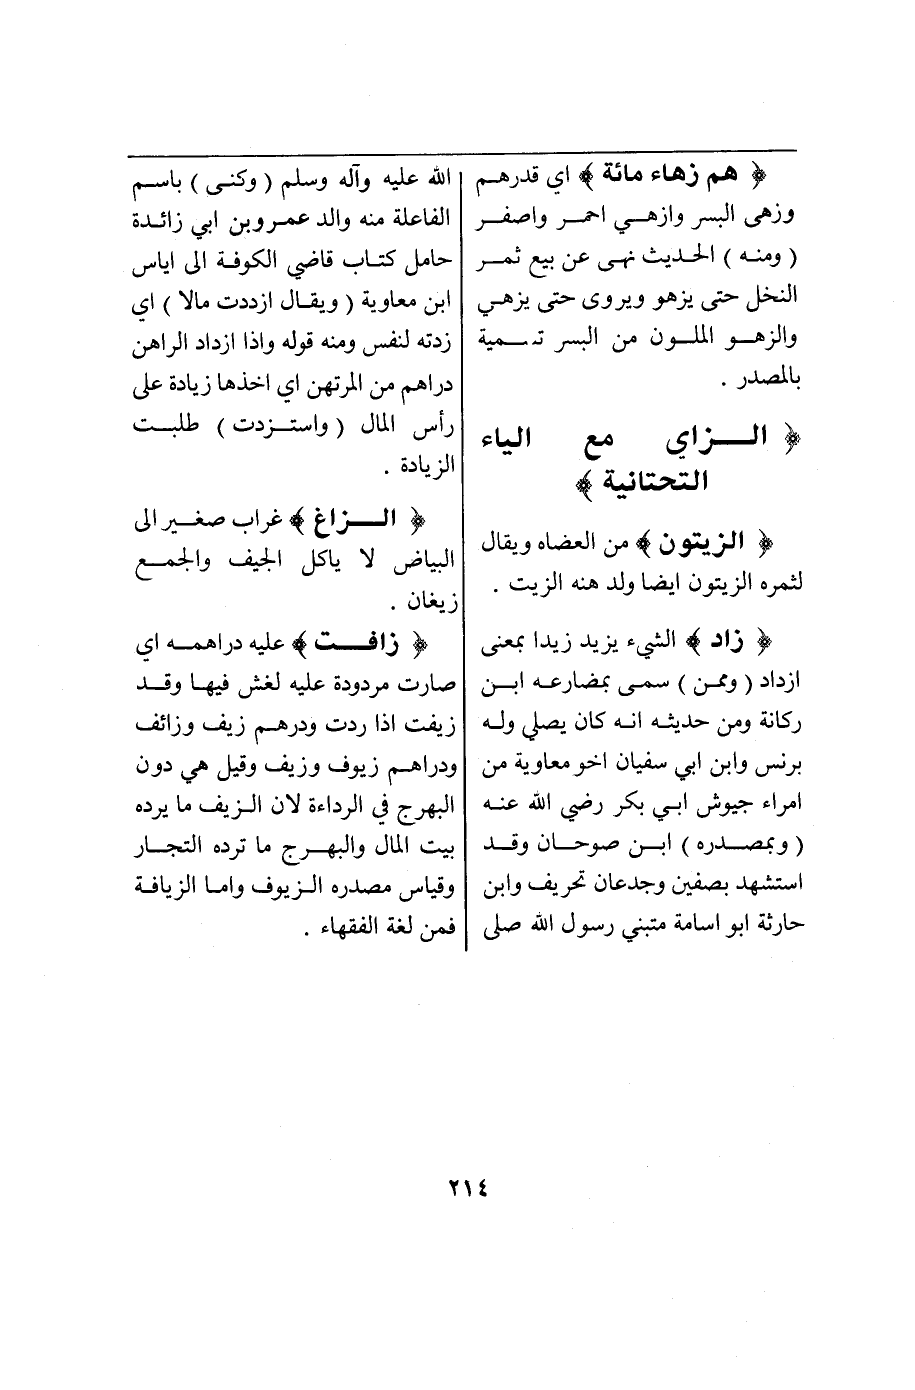 ﴿ هم زهاء مائة ﴾ اي قدرهم
وزهى البسر وازهى احمر واصفر
( ومنه ) الحديث نهى عن بيع ثمر
النخل حتى يزهو ويروى حتى يزهي
والزهو الملون من البسر تسمية
بالمصدر .
﴿ الزاي مع الياء
التحتانية ﴾
﴿ الزيتون ﴾ من العضاه ويقال
لثمره الزيتون ايضا ولد هنه الزيت .
﴿ زاد ﴾ الشيء يزيد زيدا بمعنى
ازداد ( وبمن ) سمى بمضارعه ابن
ركانة ومن حديثه انه كان يصلي وله
برنس وابن ابي سفيان اخو معاوية من
امراء جيوش ابي بكر رضي الله عنه
( وبمصدره ) ابن صوحان وقد
استشهد بصفين وجدعان تحريف وابن
حارثة ابو اسامة متبني رسول الله صلى
الله عليه وآله وسلم ( وكنى ) باسم
الفاعلة منه والد عمرو بن ابي زائدة
حامل كتاب قاضي الكوفة الى اياس
ابن معاوية ( ويقال ازددت مالا ) اي
زدته لنفس ومنه قوله واذا ازداد الراهن
دراهم من المرتهن اي اخذها زيادة على
رأس المال ( واستزدت ) طلبت
الزيادة .
﴿ الزاغ ﴾ غراب صغير الى
البياض لا ياكل الجيف والجمع
زيغان .
﴿ زافت ﴾ عليه دراهمه اي
صارت مردودة عليه لغش فيها وقد
زيفت اذا ردت ودرهم زيف وزائف
ودراهم زيوف وزيف وقيل هي دون
البهرج في الرداءة لان الزيف ما يرده
بيت المال والبهرج ما ترده التجار
وقياس مصدره الزيوف واما الزيافة
فمن لغة الفقهاء .
٢١٤